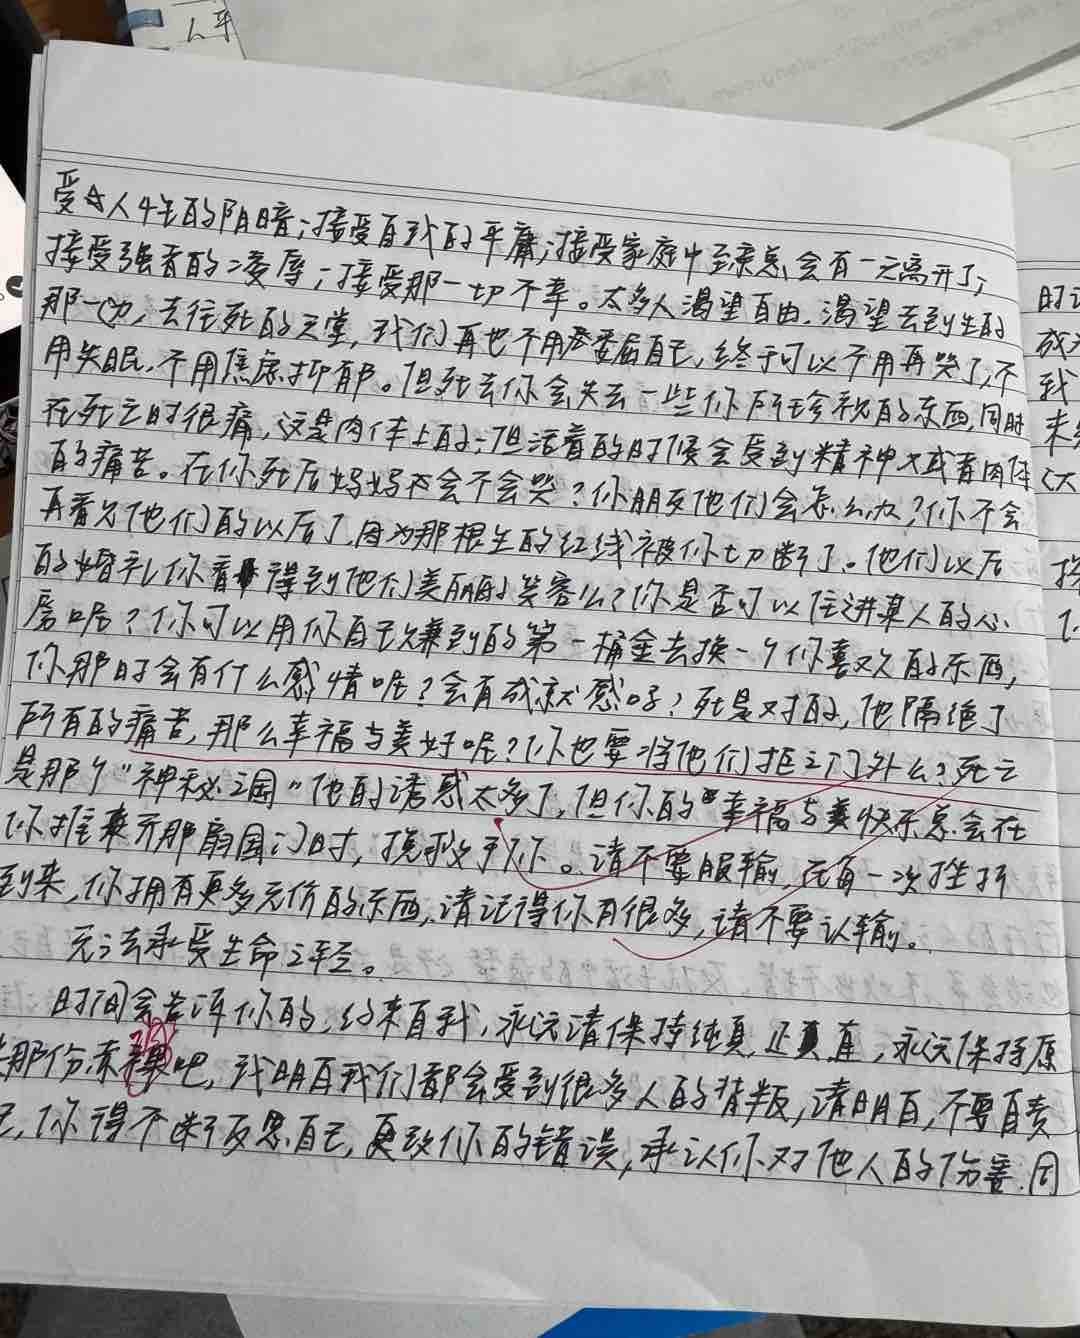 人平
受人生的阴暗；接受自我的平庸；接受家庭中至亲总会有一天离开了；
接受强者的凌辱；接受那一切不幸。太多人渴望自由，渴望去到生的
那一边，去往死的天堂，我们再也不用委屈自己，终于可以不用再哭了，不
用失眠，不用焦虑抑郁。但死去你会失去一些你所珍视的东西，同时
在死亡时很痛，这是肉体上的；但活着的时候会受到精神又或者肉体
的痛苦。在你死后妈妈会不会哭？你朋友他们会怎么办？你不会
再看见他们的以后了，因为那根生的红线被你切断了。他们以后
的婚礼你看得到他们美丽的笑容么？你是否可以住进某人的心
房呢？你可以用你自己赚到的第一桶金去换一个你喜欢的东西，
你那时会有什么感情呢？会有成就感吗？死是对的，他隔绝了
所有的痛苦，那么幸福与美好呢？你也要将他们拒之门外么？死亡
是那个“神秘之国”他的诱惑太多了，但你的幸福与快乐总会在
你推开那扇国门时，挽救于你。请不要服输，在每一次挫折
到来，你拥有更多无价的东西，请记得你有很多，请不要认输。
无法承受生命之轻。
时间会告诉你的，约束自我，永远请保持纯真，正直，永远保持原
那份赤裸吧，我明白我们都会受到很多人的背叛，请明白，不要自责
己，你得不断反思自己，更改你的错误，承认你对他人的伤害，同
时
成
我
未